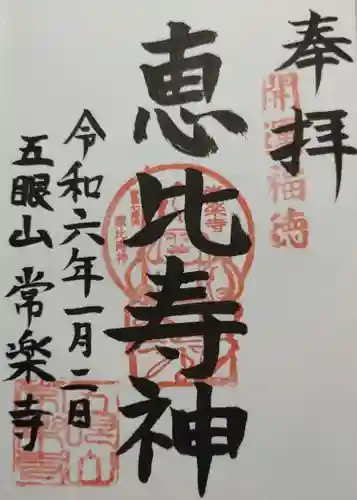 奉拝
開運福徳
恵比寿神
令和六年一月二日
五眼山 常楽寺